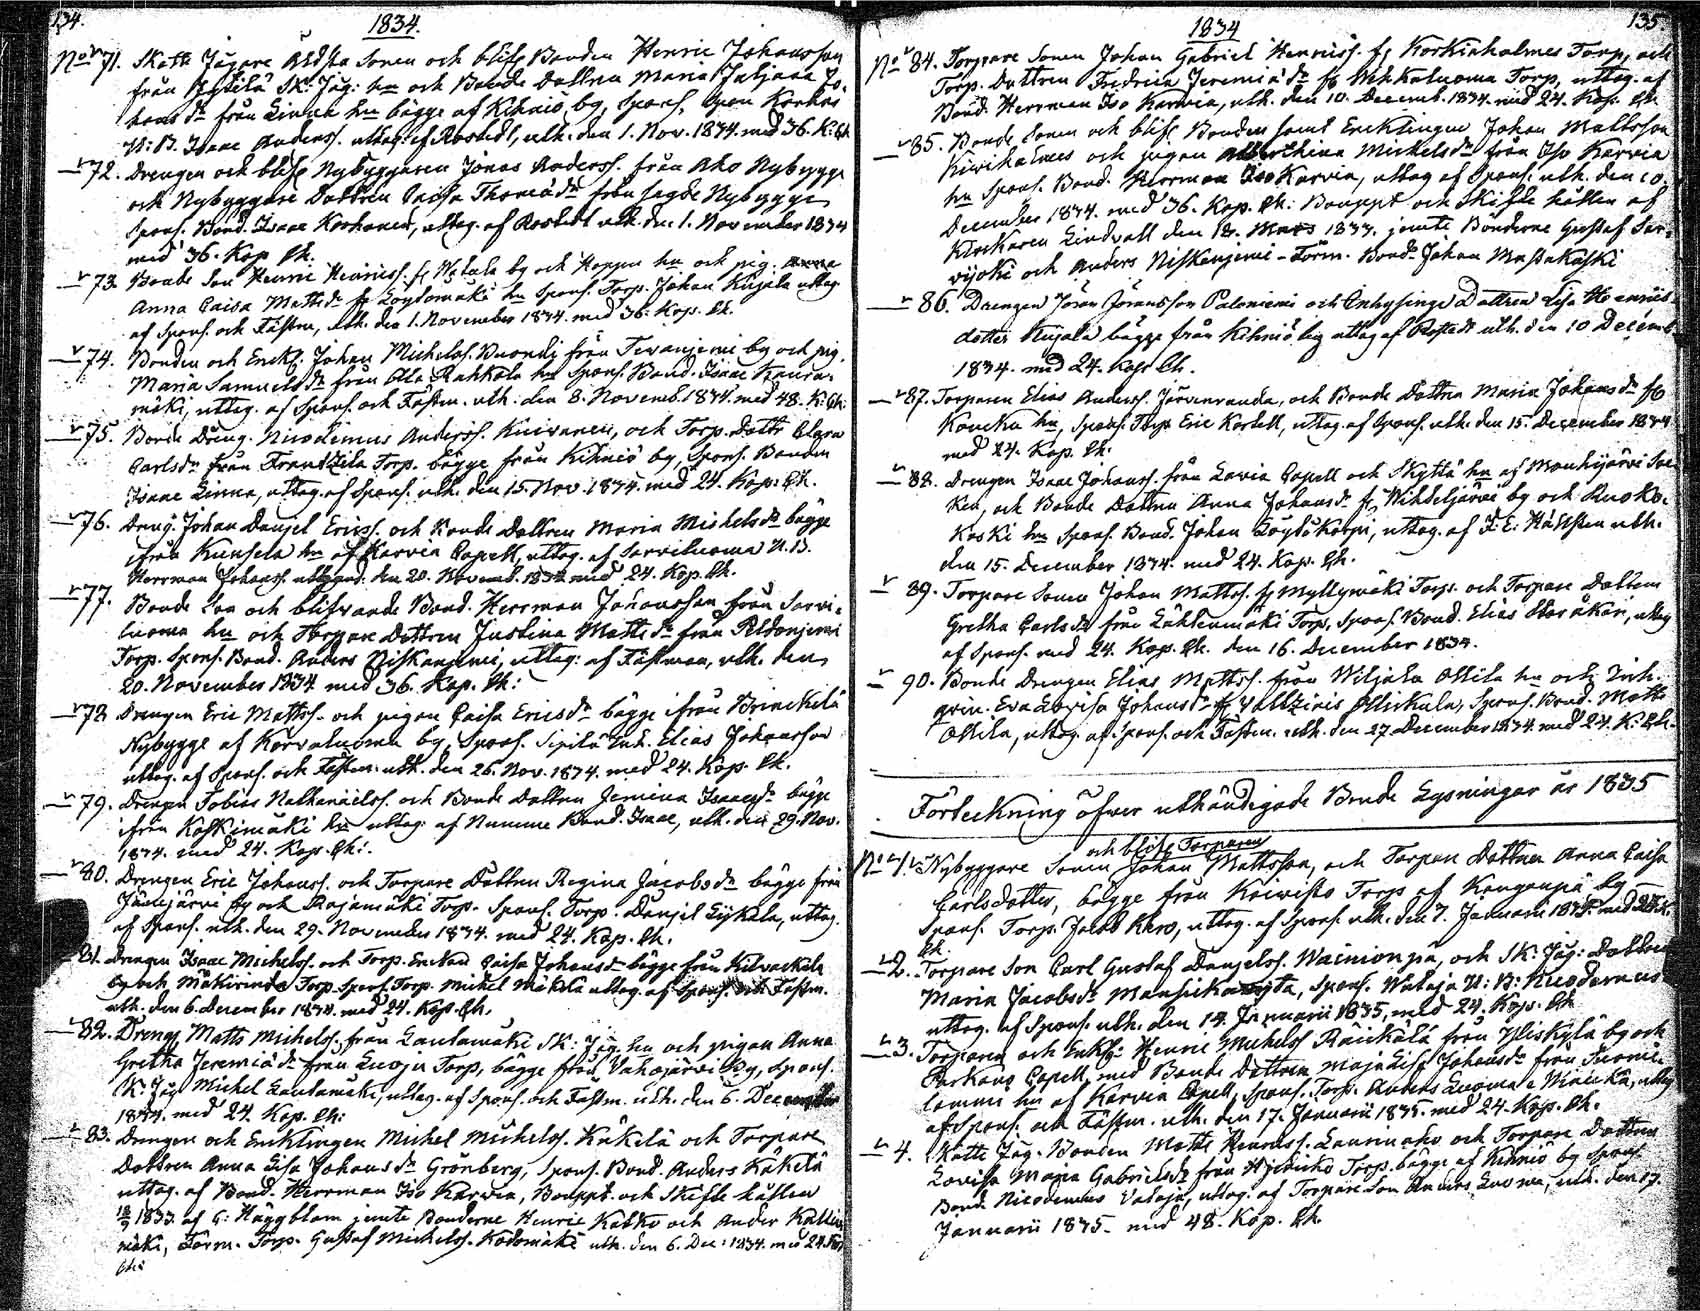 134.
1834.
No 71. Skatte Jägare Äldsta Sonen och blifv. Bonden Henric Johansson
från Sk: Jäg: hn och Bonde Dottren Maria Juljana Jo-
hans dr från Linna hn bägge af Kihniö by, Spons.
N: B. Isaac Anderss. uttag: af Rostedt, uth. den 1. Nov. 1834. med 36. K: Ch.
72. Drengen och blifv. Nybyggaren Jonas Anderss. från Aho Nybygge
och Nybyggare Dottren Caisa Thomä dr från sagde Nybygge
Spons. Bond. Isaac Korhonen, uttag. af Rostedt uth. den 1. November 1834
med 36. Kop. Ch.
73. Bonde Son Henric Henricss. fr by och Hoppu hn och pig.
Anna Caisa Matts dr fr Löytömäki hn Spons. Torp. Johan Kujala uttag.
af Spons. och Fästm, uth. den 1. November 1834. med 36. Kop. Ch.
74. Bonden och Enckl. Johan Michelss. Buondi från by och pig.
Maria Samuels dr från Ollo Rahkola hn Spons. Bond. Isaac Kaura-
mäki, uttag. af Spons. och Fästm. uth. den 8. Novemb. 1834. med 48. K: Ch.
75. Bonde Dräng. Nicodemus Anderss. Knivanen, och Torp. Dottr Clara
Carls dr från Frantzila Torp. bägge från Kihniö by, Spons. Bonden
Isaac Linna, uttag. af Spons. uth. den 15. Nov. 1834. med 24. Kop. Ch.
76. Dräng. Johan Danjel Ericss. och Bonde Dottren Maria Michels dr bägge
ifrån Kunsela hn af Karvia Capell, uttag. af Sarviluoma N. B.
Herrman Johanss. den 20. Novemb. 1834 med 24. Kop. Ch.
77. Bonde Son och blifvande Bond. Herrman Johansson från Sarvi-
luoma hn och Torpare Dottren Justina Matts dr från Peldoniemi
Torp. Spons. Bond. Anders Niskanjemi, uttag. af Fästman, uth. den
20. November 1834 med 36. Kop. Ch:
78. Drengen Eric Mattss. och pigan Caisa Erics dr bägge ifrån Brinckilä
Nybygge af Karvaluoma by, Spons. Sipilä Inh. Elias Johansson
uttag. af Spons. och Fästm. uth. den 26. Nov. 1834. med 24. Kop. Ch.
79. Drengen Tobias Nathanaelss. och Bonde Dottren Jemina Isaacs dr bägge
ifrån Koskimäki hn uttag. af Numme Bond. Isaac, uth. den 29. Nov.
1834. med 24. Kop. Ch:.
80. Drengen Eric Johanss. och Torpare Dottren Regina Jacobs dr bägge från
Jämijärvi by och Rajamäki Torp. Spons. Torp. Danjel Sykälä, uttag.
af Spons. uth. den 29. November 1834. med 24. Kop. Ch.
81. Drengen Isaac Michelss. och Torp. Enckan Caisa Johans dr bägge från
by och Mäkirinda Torp. Spons. Torp. Michel Mikola uttag. af Spons. och Fästm.
uth. den 6. December 1834. med 24. Kop. Ch.
82. Dreng Matts Michelss. från Lautamäki Sk: Jäg. hn och pigan Anna
Gretha Jeremiä dr från Luoja Torp, bägge från Vahojärvi By, Spons.
Sk. Jäg. Michel Lautamäki, uttag. af Spons. och Fästm. uth. den 6. December
1834. med 24. Kop. Ch:
83. Drengen och Encklingen Michel Michelss. Käkelä och Torpare
Dottren Anna Lisa Johans dr Grönberg, Spons. Bond. Anders Käkelä
uttag. af Bond. Herrman Iso Karvia, Bouppt. och Skifte hållen
1833. af G: Häggblom jemte Bönderne Henric Katko och Ander Kallio-
mäki, Förm. Torp. Gustaf Michelss. Kodomäki uth. den 6. Dec: 1834. med 24 Kop
Ch:
135
1834
No 84. Torpare Sonen Johan Gabriel Henricss. fr Korkiakalmes Torp, och
Torp. Dottren Fredrica Jeremiä dr fr Torp, uttag. af
Bond. Herrman Iso Karvia, uth. den 10. Decemb. 1834. med 24. Kop. Ch.
85. Bonde Sonen och blifv. Bonden samt Encklingen Johan Mattsson
Kivikalmes och pigan Albertina Michels dr från Iso Karvia
hn Spons. Bond. Herrman Iso Karvia, uttag af Spons. uth. den 10.
December 1834. med 36. Kop. Ch: Bouppt. och Skifte hållen af
Klockaren Lindvall den 12. Mars 1833. jemte Bönderne Gustaf Sar-
vijoki och Anders Niskanjemi - Förm. Bond. Johan
86. Drengen Jöran Jöransson Paloniemi och Inhysinge Dottren Lisa Henrics
dotter Kujala bägge från Kihniö by uttag af Rostedt uth. den 10 Decemb.
1834. med 24. Kop. Ch.
87. Torparen Elias Anderss. Järvenranda, och Bonde Dottren Maria Johans dr fr
hn, Spons. Torp. Eric Kortell, uttag. af Spons. uth. den 15. December 1834
med 24. Kop. Ch:
88. Drengen Isaac Johanss. från Lavia Capell och Skyttä hn af Mouhijärvi Soc-
ken, och Bonde Dottren Anna Johans dr fr Wihteljärvi by och Ruoko-
koski hn Spons. Bond. Johan Löytökorpi, uttag. af F: E: uth.
den 15. December 1834. med 24. Kop. Ch.
89. Torpare Sonen Johan Mattss. fr Myllymäki Torp. och Torpare Dottren
Gretha Carls dr från Lähtenmäki Torp, Spons. Bond. Elias uttag
af Spons. med 24. Kop. Ch. den 16. December 1834.
90. Bonde Drengen Elias Mattss. från Viljala Ollila hn och
Eva Lovisa Johans dr fr Spons. Bond. Matts
Ollila, uttag. af Spons. och Fästm. uth. den 27 December 1834. med 24. K: Ch.
Förteckning öfver uthändigade Brude Lysningar år 1835
och blifv. Torparen
No 1. Nybyggare Sonen Johan Mattsson, och Torpare Dottren Anna Caisa
Carlsdotter, bägge från Koivisto Torp af Kangenpä by
Spons. Torp. Jacob Ahro, uttag. af Spons. uth. den 7. Januarii 1835. med 24. K.
Ch.
2. Torpare Son Carl Gustaf Danjelss. Wainionpä, och Sk: Jäg: Dottren
Maria Jacobs dr Spons. Wataja N: B: Nicodemus
uttag. af Spons. uth. den 14. Januarii 1835, med 24. Kop. Ch
3. Torparen och Enkl: Henric Michelss. Räickälä från Yliskylä by och
Parkano Capell, med Bonde Dottren Maja Lisa Johans dr från Suomi-
lammi hn af Karvia Capell, Spons. Torp. Anders Luoma, uttag
af Spons. och Fästm. uth. den 17. Januarii 1835. med 24. Kop. Ch.
4. Skatte Jäg. Bonden Matts Henricss. Launiaho och Torpare Dottren
Lovisa Maria Gabriels dr från Torp. bägge af Kihniö by Spons.
Bond. Nicodemus Vataja, uttag. af Torpare Son Anders Luoma, uth. den 17.
Januarii 1835. med 48. Kop. Ch.